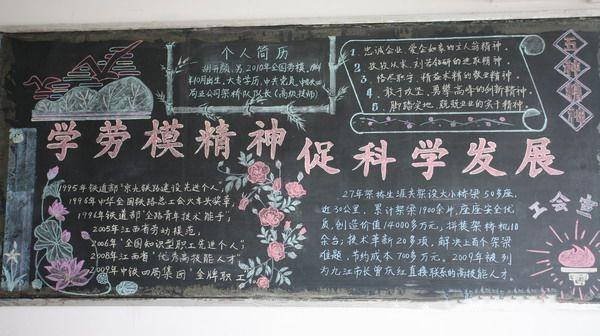 个人简历
为2010年全国劳模
年10月出生,大专学历,中共党员,中铁四
局五公司架桥队队长(高级技师)
1.忠诚企业,爱企如家的主人翁精神.
2.孜孜以求,刻苦钻研的进取精神.
3.恪尽职守,精益求精的敬业精神.
4.敢于攻坚,勇攀高峰的创新精神.
5.脚踏实地,兢兢业业的实干精神.
五种精神
学劳模精神 促科学发展
1995年铁道部"京九铁路建设先进个人",
1996年中华全国铁路总工会火车头奖章,
1996年铁道部"全路青年技术能手",
2005年江西省劳动模范,
2006年"全国知识型职工先进个人",
2008年江西省"优秀高技能人才",
2009年中铁四局集团"金牌职工"
27年架桥生涯共架设大小桥梁50多座,
近30公里,累计架梁1900余片,座座安全优
质,创造价值14000多万元,拼装架桥机10
余台;技术革新20多项,解决上百个架梁
难题,节约成本700多万元。2009年被列
为九江市长曾庆红直接联系的高技能人才.
工会宣